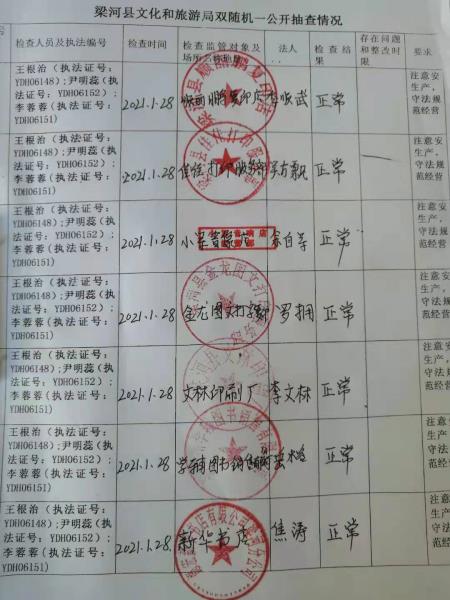 梁河县文化和旅游局双随机一公开抽查情况
检查人员及执法编号 检查时间 检查监管对象及 法人 检查结果 存在问题和整改时限 要求
王根治(执法证号:
YDH06148);尹明蕊(执
法证号:YDH06152);
李蓉蓉(执法证号:
YDH06151)
2021.1.28 武 正常
注意安
生产,
守法规
范经营
王根治(执法证号:
YDH06148);尹明蕊(执
法证号:YDH06152);
李蓉蓉(执法证号:
YDH06151)
2021.1.28 佳佳打印服务部 正常
注意安
生产,
守法规
范经营
王根治(执法证号:
YDH06148);尹明蕊(执
法证号:YDH06152);
李蓉蓉(执法证号:
YDH06151)
2021.1.28 正常
注意安
生产,
守法规
范经营
王根治(执法证号:
YDH06148);尹明蕊(执
法证号:YDH06152);
李蓉蓉(执法证号:
YDH06151)
2021.1.28 金龙图文打 罗拥 正常
注意安
生产,
守法规
范经营
王根治(执法证号:
YDH06148);尹明蕊(执
法证号:YDH06152);
李蓉蓉(执法证号:
YDH06151)
2021.1.28 文林印刷厂 李文林 正常
注意安
生产,
守法规
范经营
王根治(执法证号:
YDH06148);尹明蕊(执
法证号:YDH06152);
李蓉蓉(执法证号:
YDH06151)
2021.1.28 图书 正常
注意安
生产,
守法规
范经营
王根治(执法证号:
YDH06148);尹明蕊(执
法证号:YDH06152);
李蓉蓉(执法证号:
YDH06151)
2021.1.28 新华书店 焦涛 正常
注意安
生产,
守法规
范经营